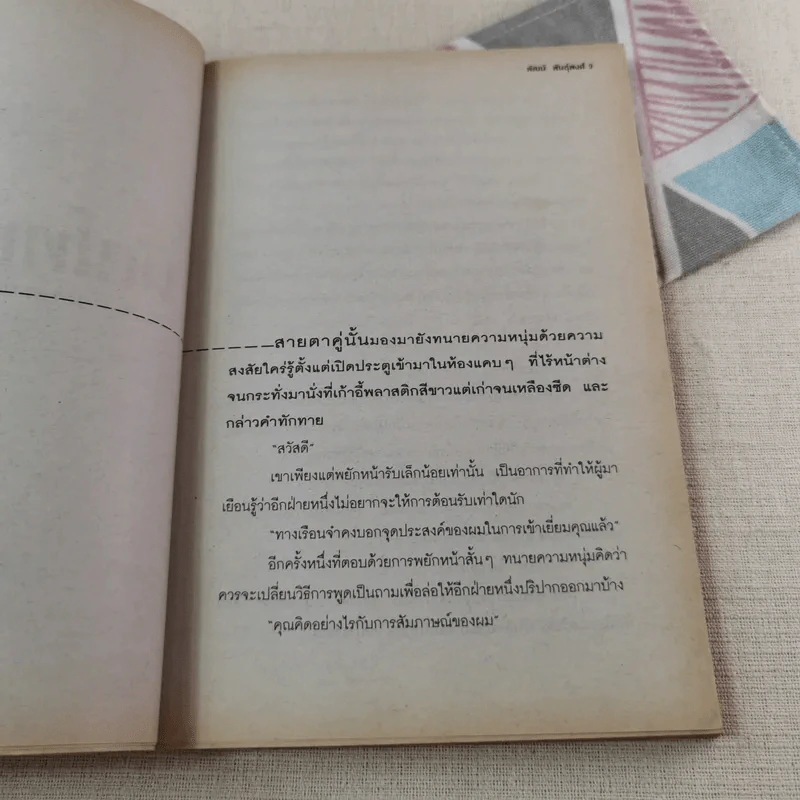 พันธุ์พงศ์ 7
สายตาคู่นั้นมองมายังทนายความหนุ่มด้วยความ
สงสัยใคร่รู้ตั้งแต่เปิดประตูเข้ามาในห้องแคบๆ ที่ไร้หน้าต่าง
จนกระทั่งมานั่งที่เก้าอี้พลาสติกสีขาวแต่เก่าจนเหลืองซีด และ
กล่าวคำทักทาย
"สวัสดี"
เขาเพียงแต่พยักหน้ารับเล็กน้อยเท่านั้น เป็นอาการที่ทำให้ผู้มา
เยือนรู้ว่าอีกฝ่ายหนึ่งไม่อยากจะให้การต้อนรับเท่าใดนัก
"ทางเรือนจำคงบอกจุดประสงค์ของผมในการเข้าเยี่ยมคุณแล้ว"
อีกครั้งหนึ่งที่ตอบด้วยการพยักหน้าสั้นๆ ทนายความหนุ่มคิดว่า
ควรจะเปลี่ยนวิธีการพูดเป็นถามเพื่อล่อให้อีกฝ่ายหนึ่งปริปากออกมาบ้าง
"คุณคิดอย่างไรกับการสัมภาษณ์ของผม"